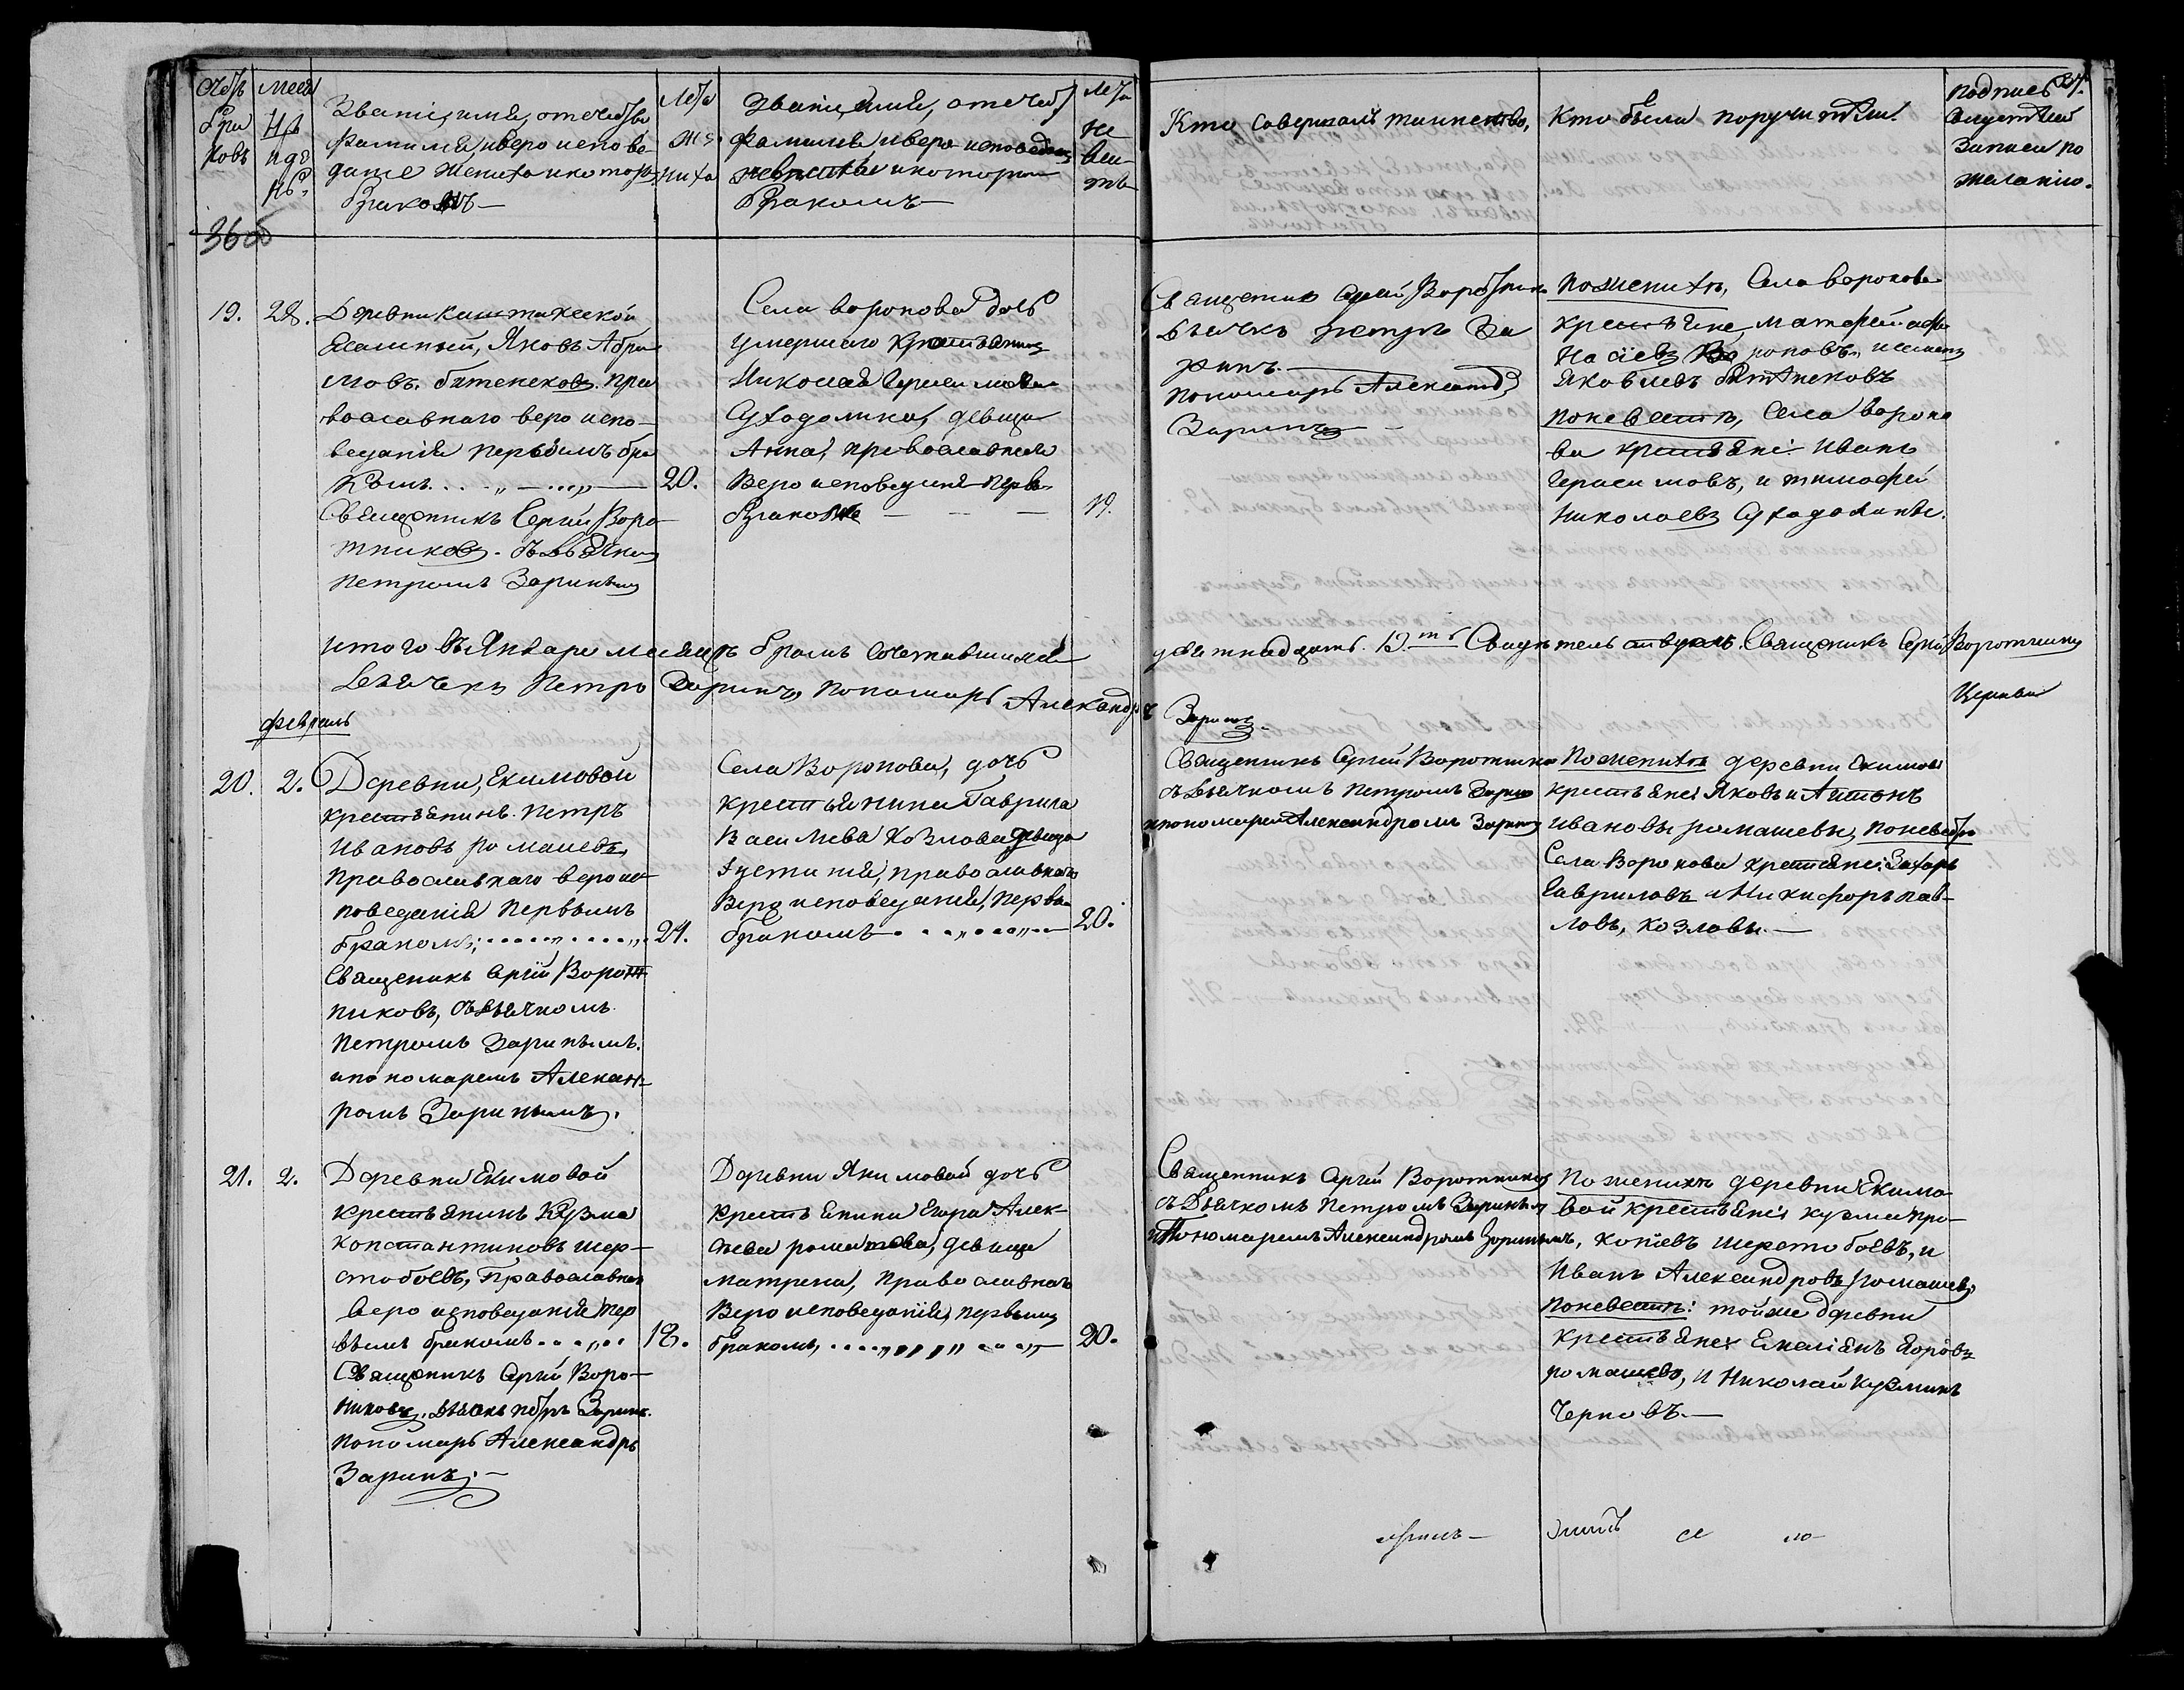 Счетъ Бра ковъ
Меся Цъ и де нь.
Званіе, имя, отечество
Фамилія и вероиспове
дание Жениха и которы
Бракомъ —
Лета же ниха
Званіе, имя, отечест
Фамилія и вероисповедан
невесты и которым
Бракомъ —
Лета не вес ты
Кто совершалъ таинство,
Кто были поручители.
37.
Подпись
Свидетелей
Записи по
желанію.
36 об
19. 28.
Деревни
Ясашный, Яковъ Абра
мовъ. Пра
вославнаго веро испо—
веданія первымъ бра
комъ. 20.
Священникъ Сергий Воро—
тников. съ Дьячком
Петромъ Зариным
Села Воронова дочь
умершаго крестьянина
Николая Герасимова
Суходолина, девица
Анна, православнаго
Веро исповедания первы
браком — — — 19.
Священник Сергий Воротник
Дьячекъ Петръ За
ринъ. —
Пономарь Александ
Заринъ —
По женихъ, Села Воронова
крестьяне, Матфей Афа
насіевъ Вороновъ,
Яковлевъ
По невесте, Села Воро
ва крестьяне: Иванъ
Герасимовъ, и Тимофей
Николаевъ Суходолины.
итого въ Январе месяце браком сочетавшихся
девятнадцать. 19.ть Священикъ Сергий Воротников
Дьячекъ Петръ Заринъ, Пономарь Александръ
Заринъ
Церкви
февраль
20. 2.
Деревни, Екимовой
крестьянинъ. Петръ
Ивановъ Ромашевъ,
православнаго вероис—
поведанія первымъ
бракомъ; 21.
Священикъ Сергій Ворот—
никовъ, съ Дьячкомъ
Петромъ Заринымъ.
и пономаремъ Алексан—
ромъ Заринымъ.
Села Воронова, дочь
крестьянина Гаврила
Васильева Козлова девица
Іустинія, православнаго
Веро исповеданія, первы
бракомъ 20.
Священникъ Сергий Воротник
съ Дьячкомъ Петромъ Зарин
и пономарем Александромъ Зарин
По женихе деревни Екимов
крестьяне: Яковъ и Антонъ
Ивановы Ромашевы, по невесте
Села Воронова крестьяне: Захаръ
Гавриловъ и Никифоръ Пав—
ловъ, Козловы. —
21. 2.
Деревни Екимовой
крестьянинъ Кузма
Константиновъ Шер—
стобоевъ, Православнаго
веро исповеданія пер
вымъ бракомъ 18.
Священикъ Сергій Воро—
никовъ, Дьячекъ Петръ Зарин.
Пономарь Александръ
Заринъ. —
Деревни Якимовой дочь
крестьянина Егора Алек—
сеева Ромашова, девица
Матрена, православнаго
Веро исповеданія, первымъ
бракомъ, 20.
Священникъ Сергий Воротников
съ Дьячкомъ Петромъ Зариным
и Пономаремъ Александромъ Заринымъ,
По женихе деревни Екимо
вой крестьяне: Кузма Про—
копіевъ Шерстобоевъ, и
Иванъ Александровъ Ромашев,
По невесте: той же деревни
крестьяне: Емеліянъ Егоровъ
Ромашевъ, и Николай Кузминъ
Черновъ. —